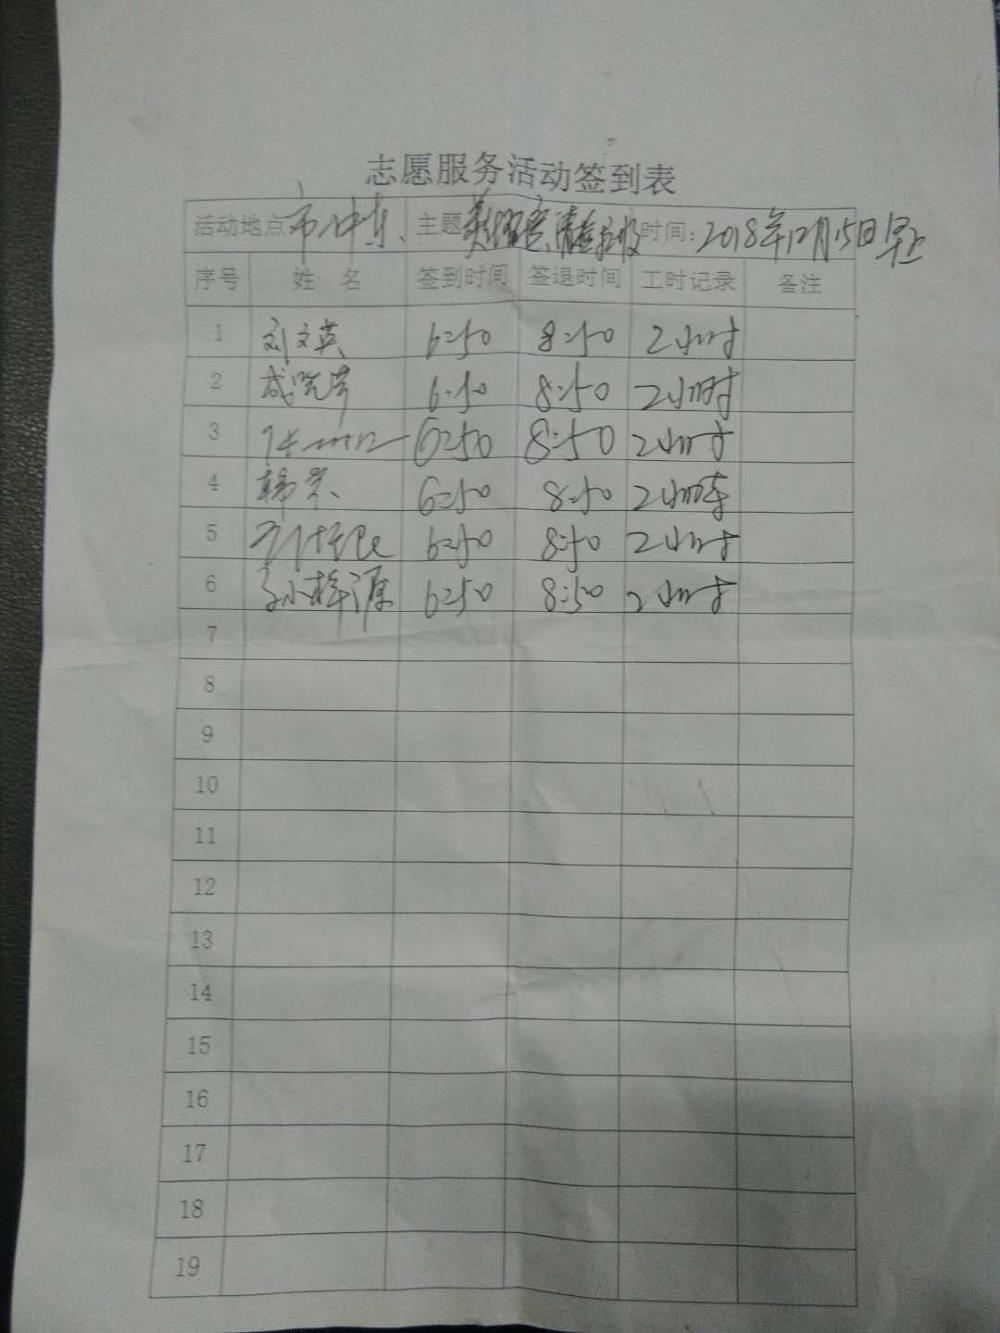 志愿服务活动签到表
活动地点 市中东、 主题 清垃圾 时间：2018年12月15日早上
序号 姓 名 签到时间 签退时间 工时记录 备注
1 刘文英 6:50 8:50 2小时
2 6:50 8:50 2小时
3 6:50 8:50 2小时
4 韩 6:50 8:50 2小时
5 6:50 8:50 2小时
6 孙梓源 6:50 8:50 2小时
7
8
9
10
11
12
13
14
15
16
17
18
19